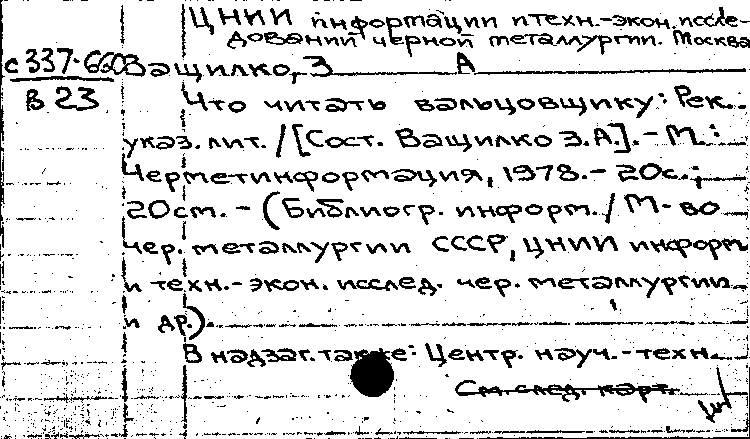 ЦНИИ информации и техн.-экон. иссле-
дований черной металлургии. Москва
с 337.660
В 23
Ващилко, З А
Что читать вальцовщику: Рек.
указ. лит. / [Сост. Ващилко З.А.]. - М.:
Черметинформация, 1978. - 20с.;
20см. - (Библиогр. информ. / М-во
чер. металлургии СССР, ЦНИИ информ
и техн.-экон. исслед. чер. металлургии
и др.).
В надзаг. также: Центр. науч.-техн.
См. след. карт.